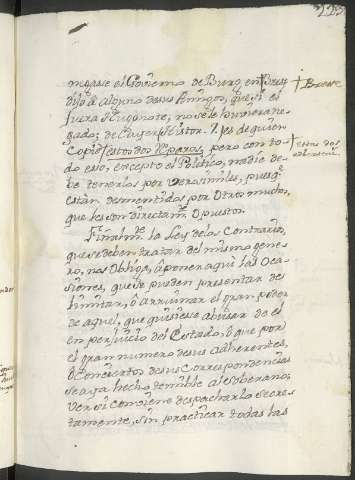 negasse el Govierno de Burg, en
dijo â alguno desus Amigos, que si el
fuera Hugonote, no sele huviera ne-
gado; de Auger Histor. Aqui deguien
Copiô estos dos reparos; pero con to-
do eso, excepto el Politico, nadie de-
be tenerlos por verosimiles, pues q.e
estan desmentidos por otros muchos,
que les son directam.te Opuestos.
Finalm.te la Ley delos Contrarios,
que sedeben tratar del mismo gene-
ro, nos Obliga, â poner aqui las Oca-
siones, que se pueden presentar de
limitar, ô arruinar el gran poder
de aquel, que quisiese abusar de el
en perjuicio del Estado, ô que por
el gran numero desus adherentes,
ô Conciertos desus Correspondencias
se aya hecho temible al soberano;
Ver si conviene despacharlo secre-
tamente, sin practicar todas las
† Breve
† estas dos